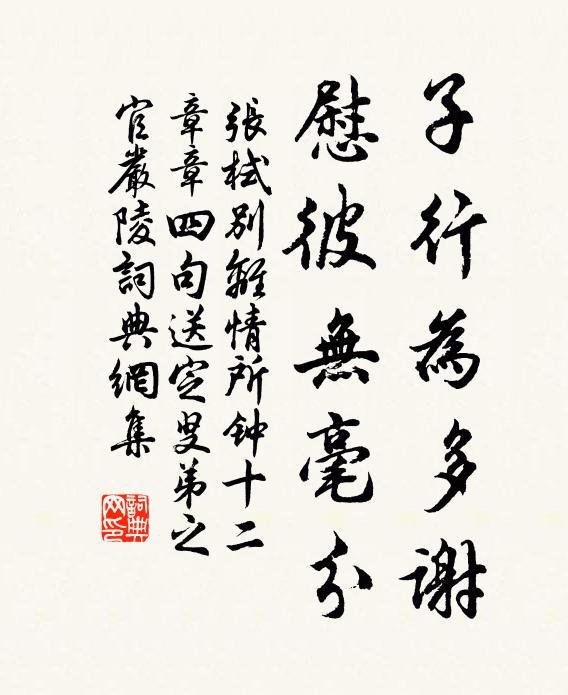 子行為多謝
慰彼無毫分
張栻別離情所钟十二
章章四句送定叟弟之
官嚴陵詞典網集
詞典网印